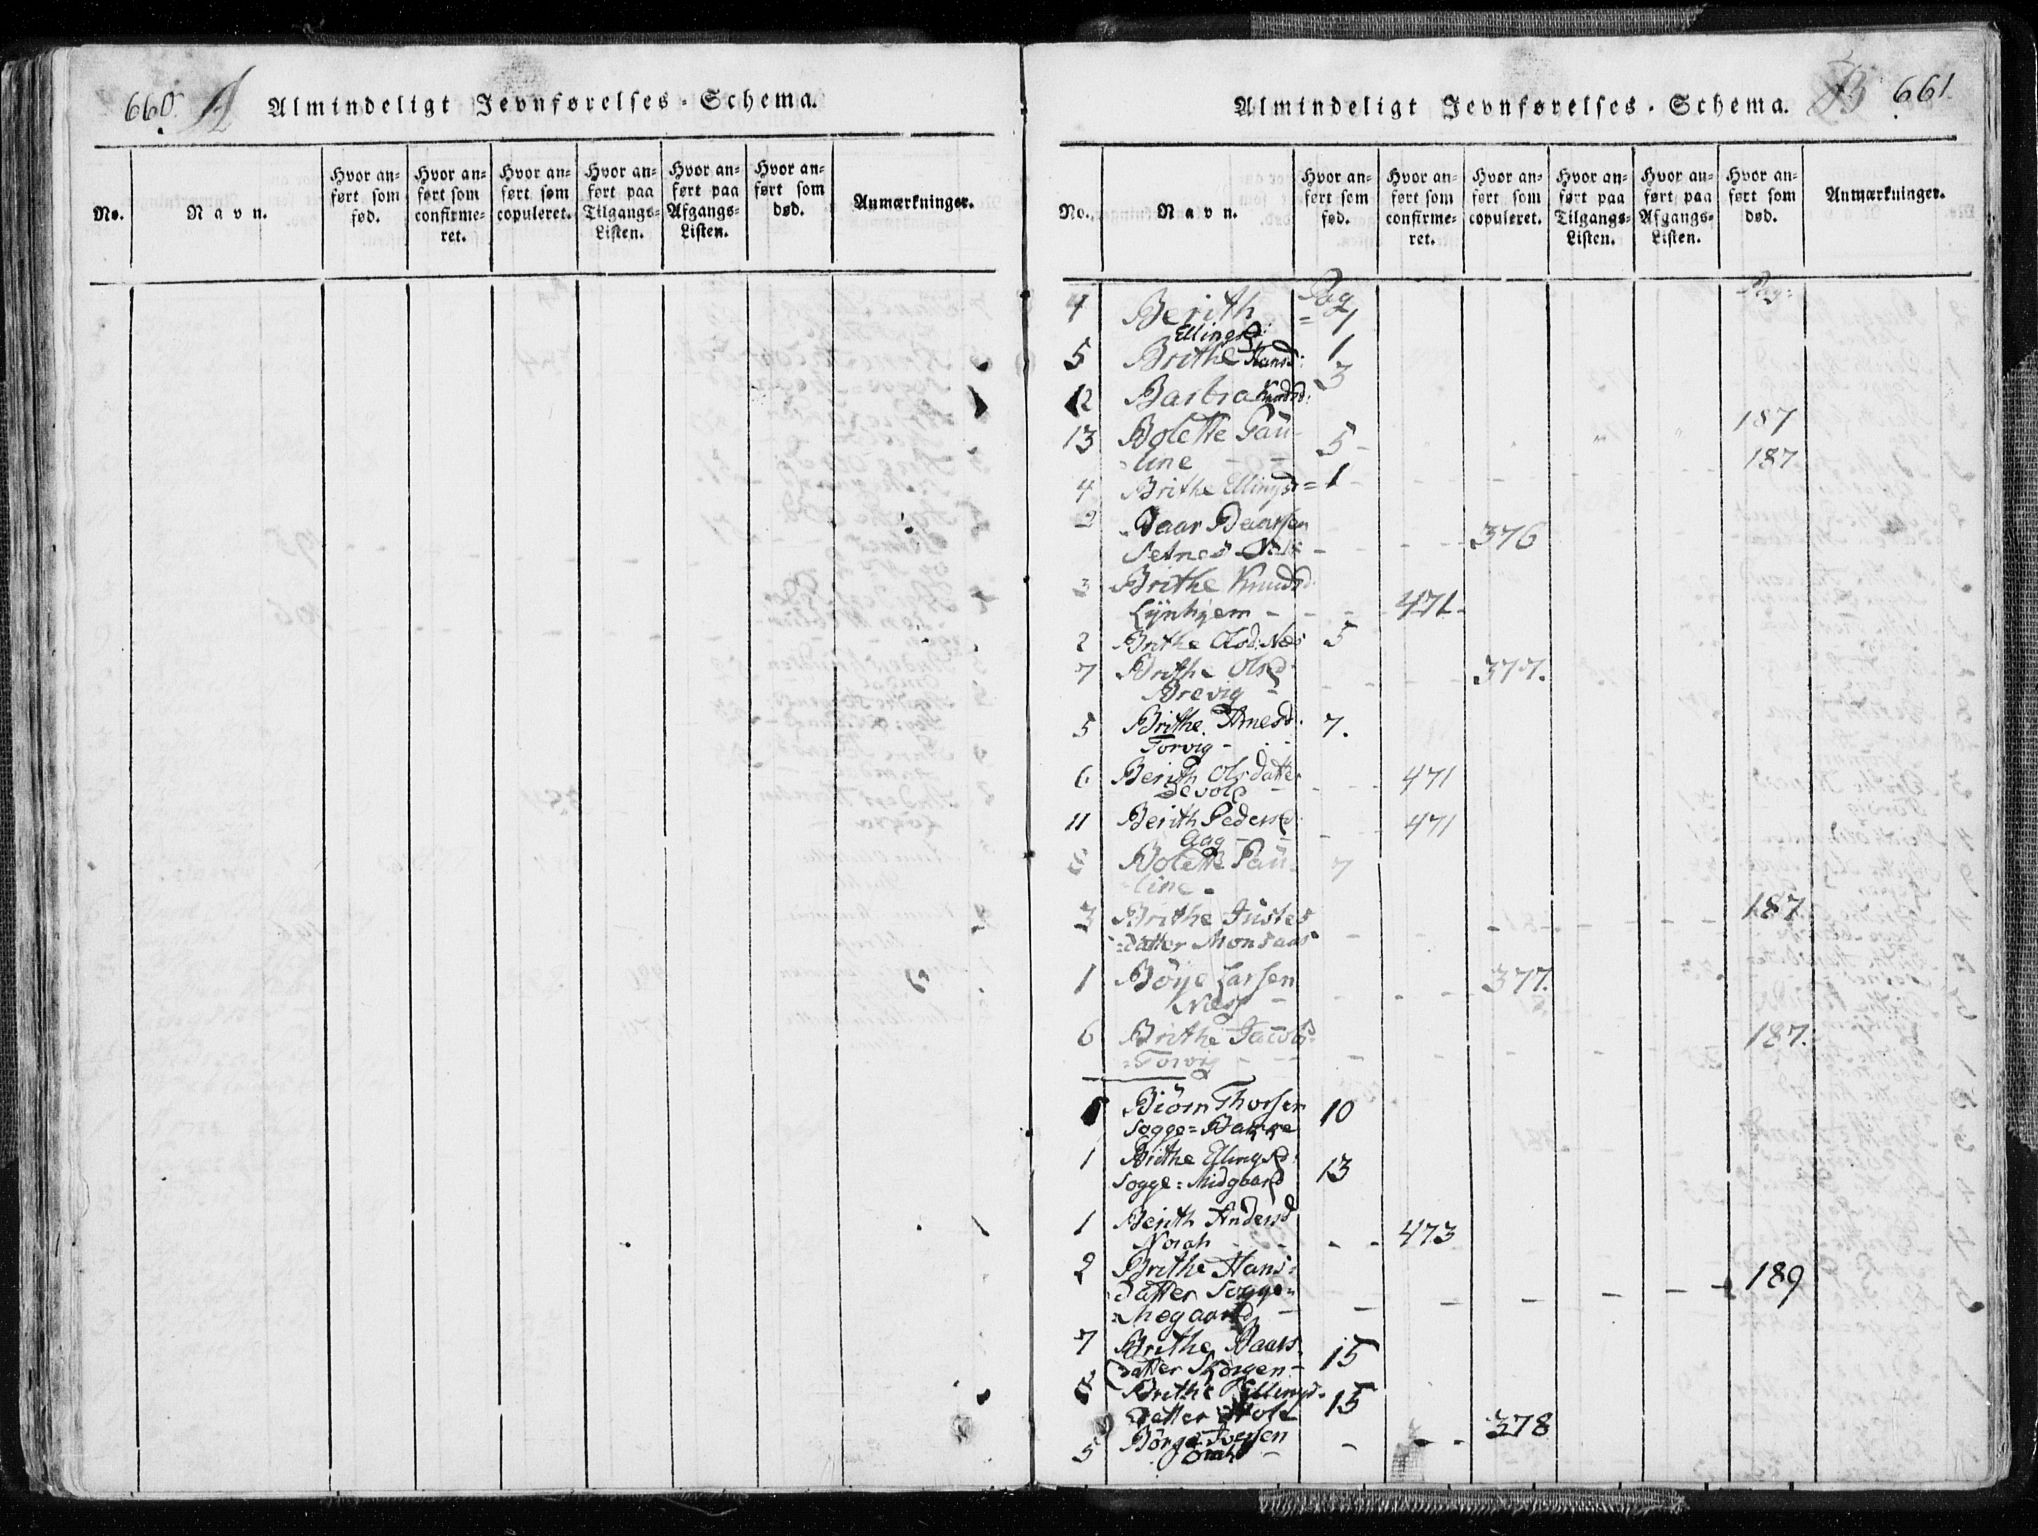 660. A Almindeligt Jevnførelses-Schema.
No.
Navn.
Hvor anført som fød.
Hvor anført som confirmeret.
Hvor anført søm copuleret.
Hvor anført paa Tilgangs-Listen.
Hvor anført paa Afgangs-Listen.
Hvor anført som død.
Anmærkninger.
Almindeligt Jevnførelses-Schema. B 661.
No.
Navn.
Hvor anført som fød.
Hvor anført som confirmeret.
Hvor anført som copuleret.
Hvor anført paa Tilgangs-Listen.
Hvor anført paa Afgangs-Listen.
Hvor anført som død.
Anmærkninger.
Pag Pag:
4 Berith = 1
Ellingsd:
5 Brithe Hansd: 1
12 Barbra Knudsd: 3
13 Bolette Pau- 5 187
line - - 187
4 Brithe Ellingsd = 1
2 Baar Baarsen
Setnes - 376
3 Brithe Knudsd:
Lÿnhjem - - - 471
2 Brithe Olsd: Næs 5
7 Brithe Olsd:
Brevig - 377.
5 Brithe Arnesd: 7.
Torvig -
6 Berith Olsdatter 471
Devold -
11 Berith Pedersd: 471
Aag - -
Bolette Pau- 7
line -
3 Brithe Justes 187
=datter Monsaas
1 Böÿe Larsen 377.
Næss -
6 Brithe Jacobs 187.
=Torvig - -
Biörn Thorsen 10
Sogge=Bakke
1 Brithe Ellingsd: 13
Sogge=Midgaard
1 Berith Andersd
Norah - - 473
2 Brithe Hans= 189
datter Sogge=
=Moegaard -
7 Brithe Baars 15
datter Skorgen -
Brithe Ellings 15
datter Hole
5 Börge Iversen 378
-